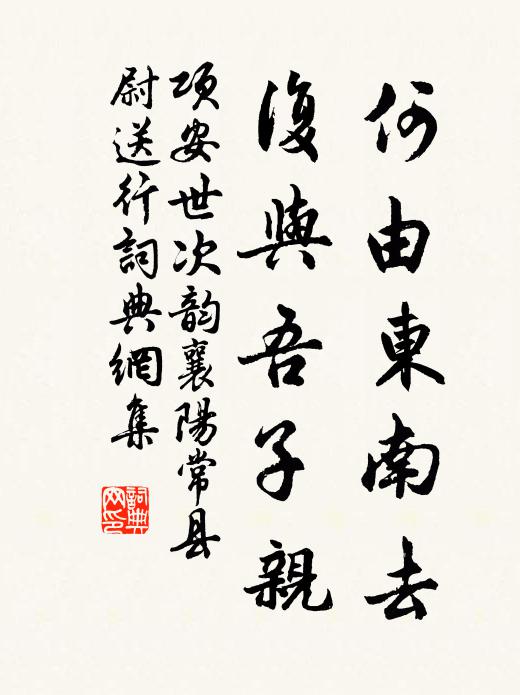 何由東南去
復與吾子親
項安世次韵襄陽常县
尉送行詞典網集
詞典
网印